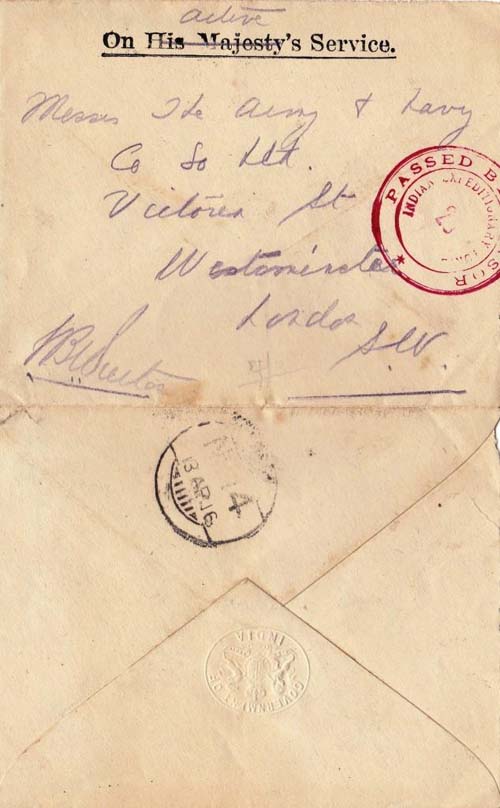 active
On His Majesty's Service.
Messrs The Army & Navy
Co So Ltd.
Victoria St
Westminster
London
S.W.
PASSED B SOR
INDIAN EXPEDITIONARY FORCE
14
13 AP.16
INDIA
GOVERNMENT OF